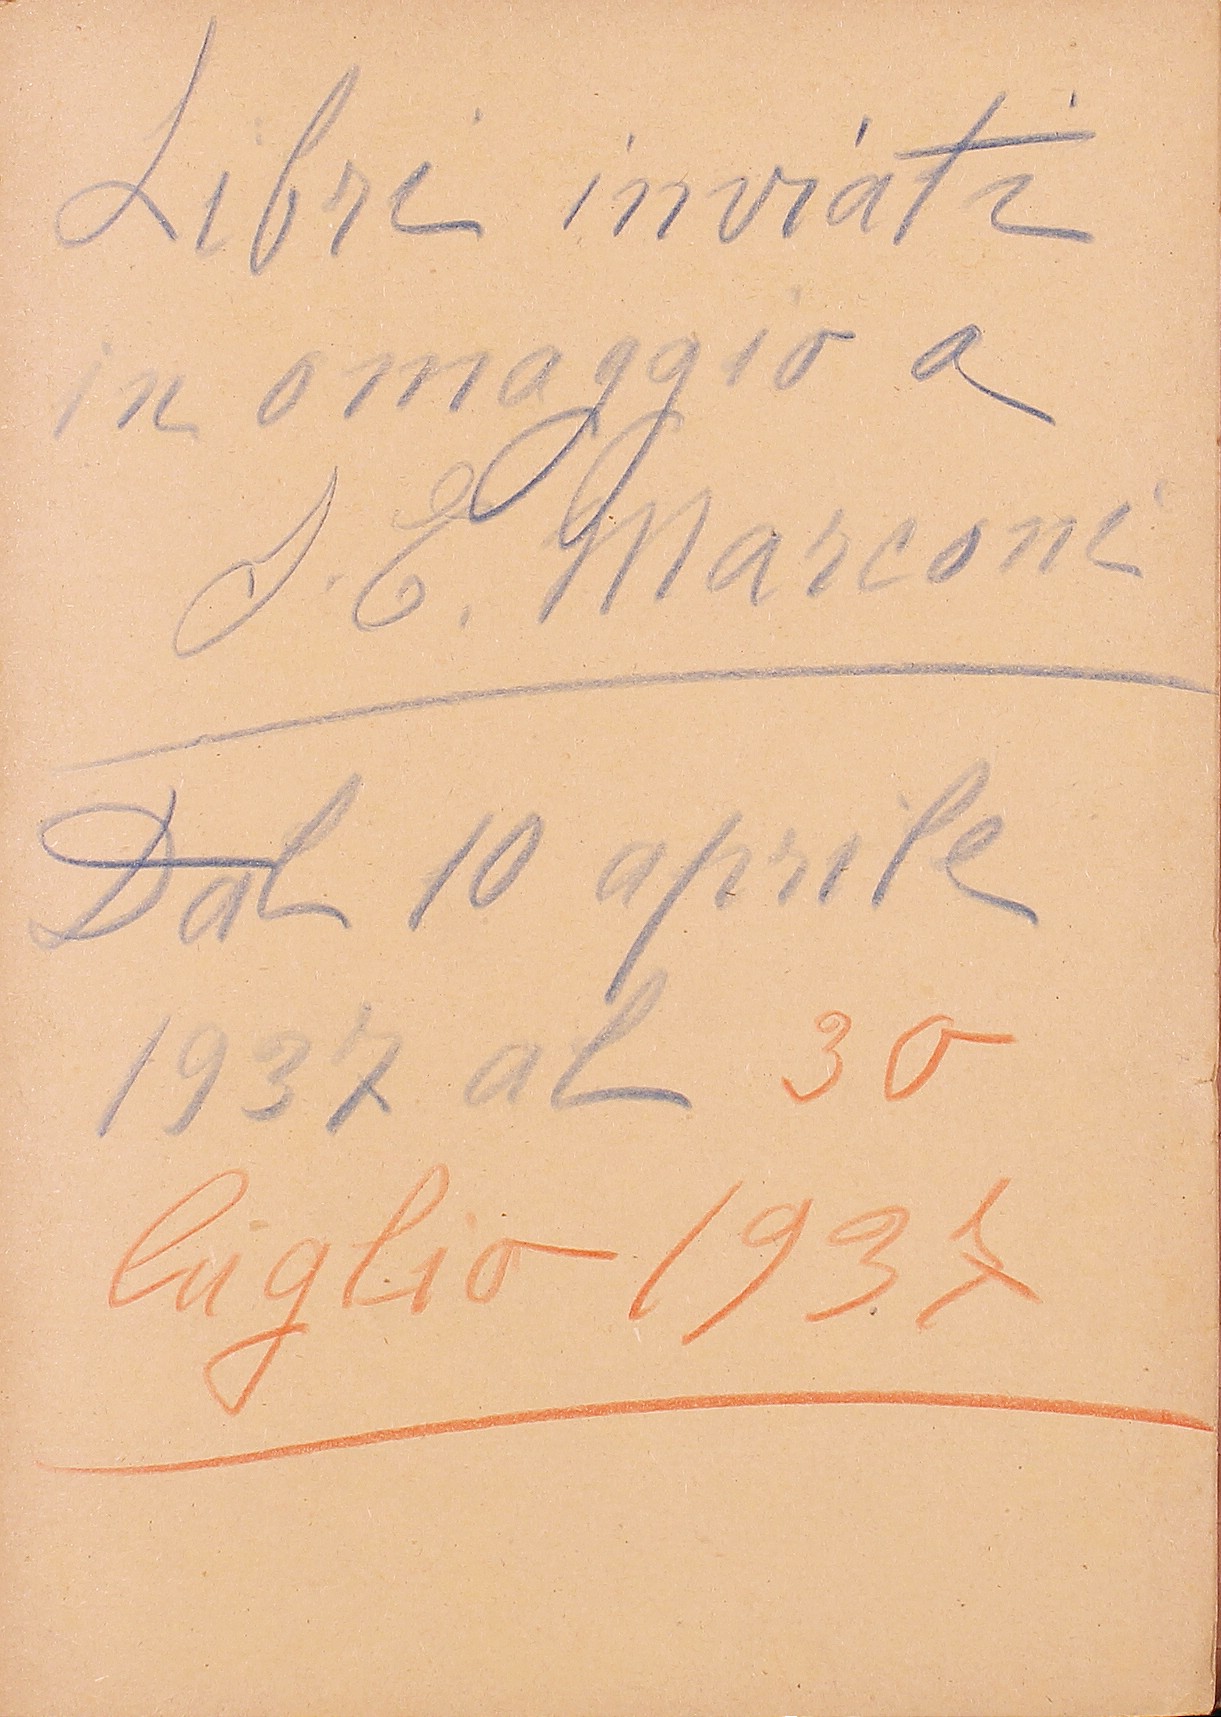 Libri inviati
in omaggio a
S. E. Marconi
Dal 10 aprile
1937 al 30
luglio 1937